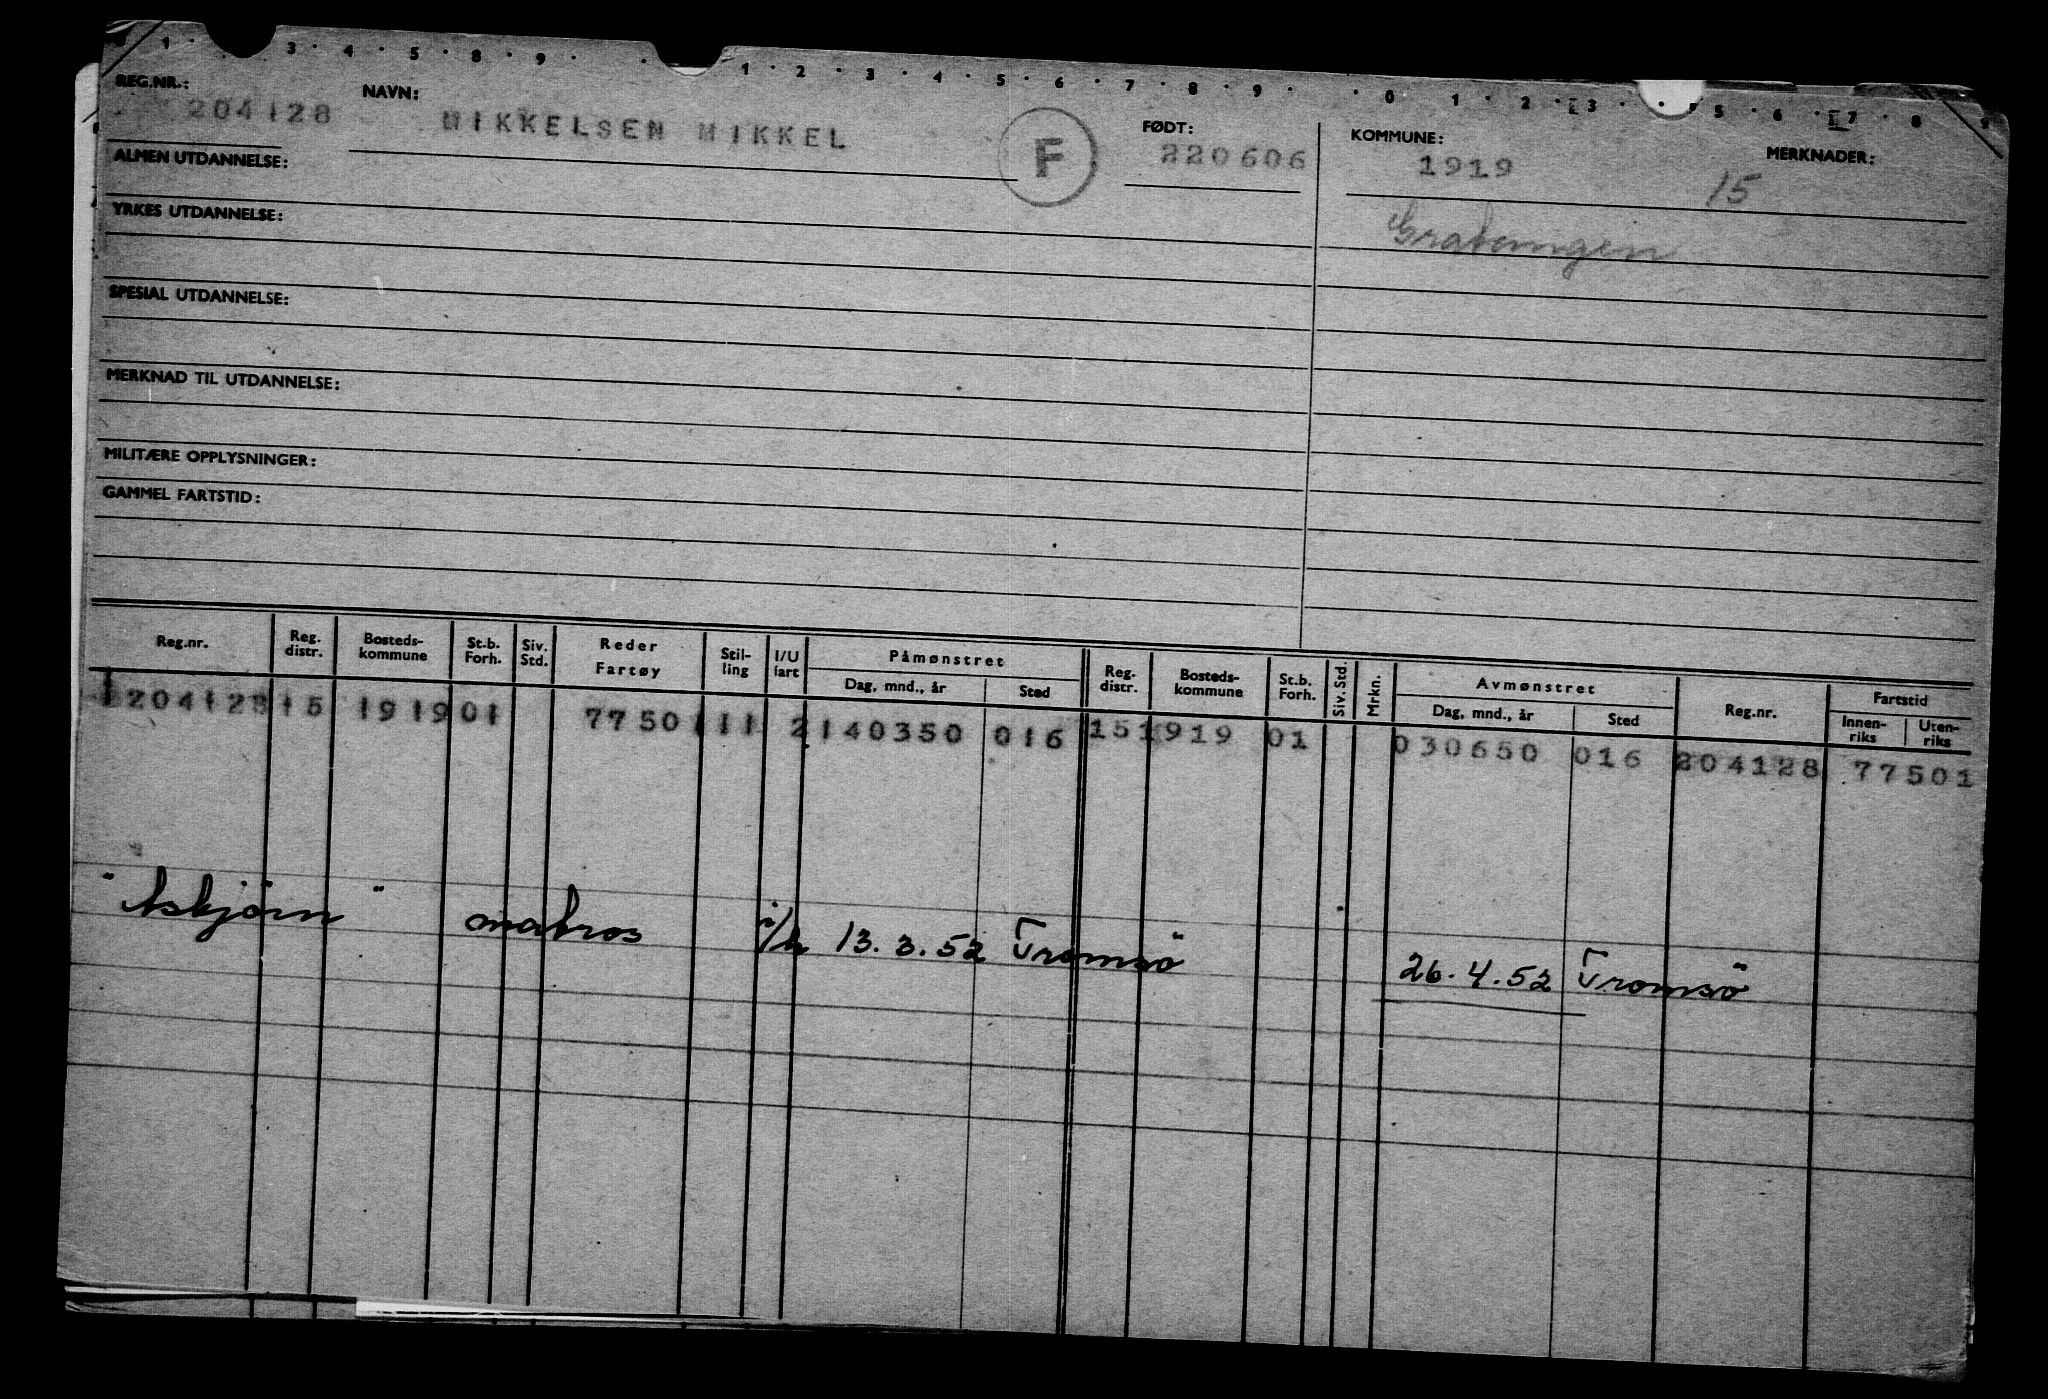 1 · 3 · 4 · 5 · 8 · 9 · · 1 · 2 · 3 · 4 · 5 · 6 · 7 · 8 · 9 · · 0 · 1 · 2 · 3 · · 5 · 6 · 7 · 8 · 9
REG.NR.: NAVN: FØDT: KOMMUNE: MERKNADER:
204128 MIKKELSEN MIKKEL F 220606 1919 15
ALMEN UTDANNELSE:
YRKES UTDANNELSE: Gratangen
SPESIAL UTDANNELSE:
MERKNAD TIL UTDANNELSE:
MILITÆRE OPPLYSNINGER:
GAMMEL FARTSTID:
Reg.nr. Reg. distr. Bosteds-kommune St.b. Forh. Siv. Std. Reder Fartøy Stil-ling I/U fart Påmønstret Dag, mnd., år Sted Reg. distr. Bosteds-kommune St.b. Forh. Siv. Std. Mrkn. Avmønstret Dag, mnd., år Sted Reg.nr. Fartstid Innen-riks Uten-riks
204128 15 1919 01 7750 111 2 140350 016 15 1919 01 030650 016 204128 77501
"Asbjörn" matros 13.3.52 Tromsö 26.4.52 Tromsö